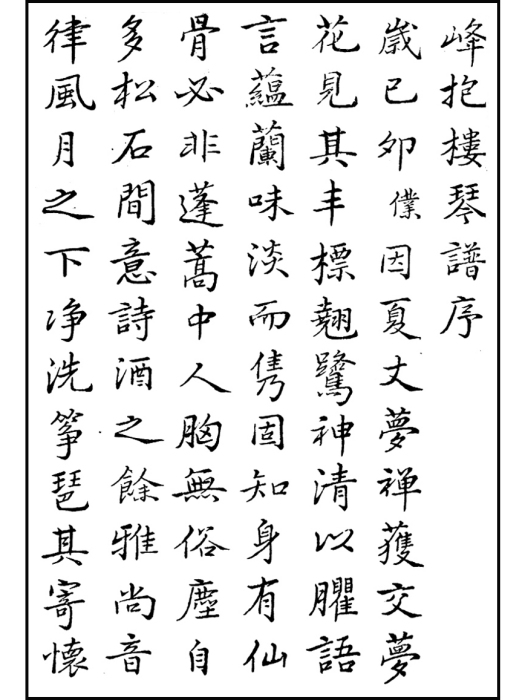 峰抱樓琴譜序
歲已卯僕因夏丈夢禅獲交夢
花見其丰標翹鷺神清以臞語
言蘊蘭味淡而雋固知身有仙
骨必非蓬蒿中人胸無俗塵自
多松石間意詩酒之餘雅尚音
律風月之下净洗筝琶其寄懷